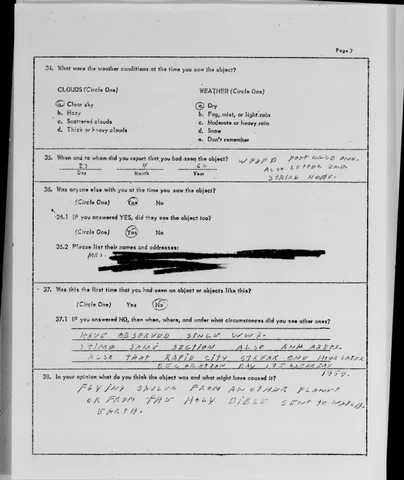 Page 7
34. What were the weather conditions at the time you saw the object?
CLOUDS (Circle One) WEATHER (Circle One)
a. Clear sky a. Dry
b. Hazy b. Fog, mist, or light rain
c. Scattered clouds c. Moderate or heavy rain
d. Thick or heavy clouds d. Snow
e. Don't remember
35. When and to whom did you report that you had seen the object?
POST CARD ONE.
ALSO LETTER 2ND.
Day Month Year
36. Was anyone else with you at the time you saw the object?
(Circle One) Yes No
36.1 IF you answered YES, did they see the object too?
(Circle One) Yes No
36.2 Please list their names and addresses:
MRS.
37. Was this the first time that you had seen an object or objects like this?
(Circle One) Yes No
37.1 IF you answered NO, then when, where, and under what circumstances did you see other ones?
HAVE OBSERVED SINCE WW2.
SAME SECTION ALSO
ALSO THAT RAPID CITY ONE LATER
DECORATION DAY SATURDAY
1959.
38. In your opinion what do you think the object was and what might have caused it?
FLYING SAUCER FROM ANOTHER PLANET
OR FROM THE HOLY BIBLE SENT TO WATCH
EARTH.